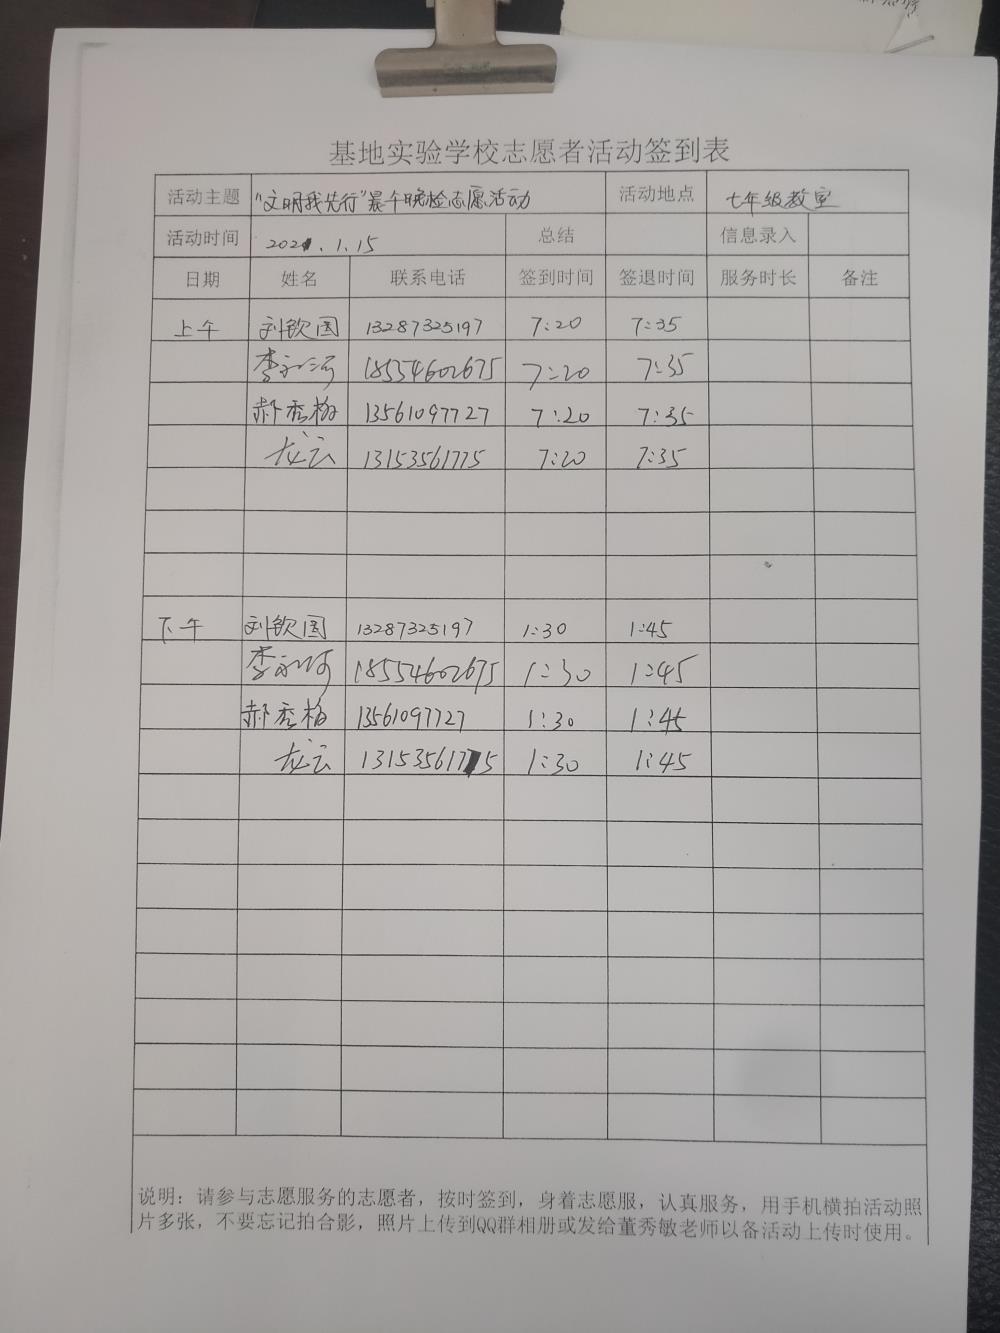 基地实验学校志愿者活动签到表
活动主题 "文明我先行"晨午晚检志愿活动 活动地点 七年级教室
活动时间 2021.1.15 总结 信息录入
日期 姓名 联系电话 签到时间 签退时间 服务时长 备注
上午 刘钦国 13287325197 7:20 7:35
李 18554602675 7:20 7:35
郝秀梅 13561097727 7:20 7:35
龙云 13153561775 7:20 7:35
下午 刘钦国 13287325197 1:30 1:45
李 18554602675 1:30 1:45
郝秀梅 13561097727 1:30 1:45
龙云 13153561775 1:30 1:45
说明：请参与志愿服务的志愿者，按时签到，身着志愿服，认真服务，用手机横拍活动照
片多张，不要忘记拍合影，照片上传到QQ群相册或发给董秀敏老师以备活动上传时使用。